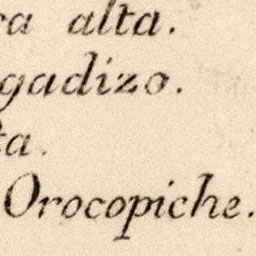 ca alta.
gadizo.
ta.
Orocopiche.